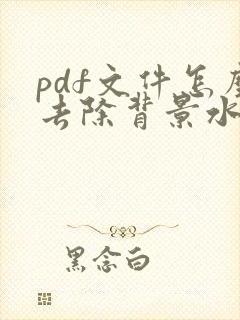 pdf文件怎
去除背景水
黑念白